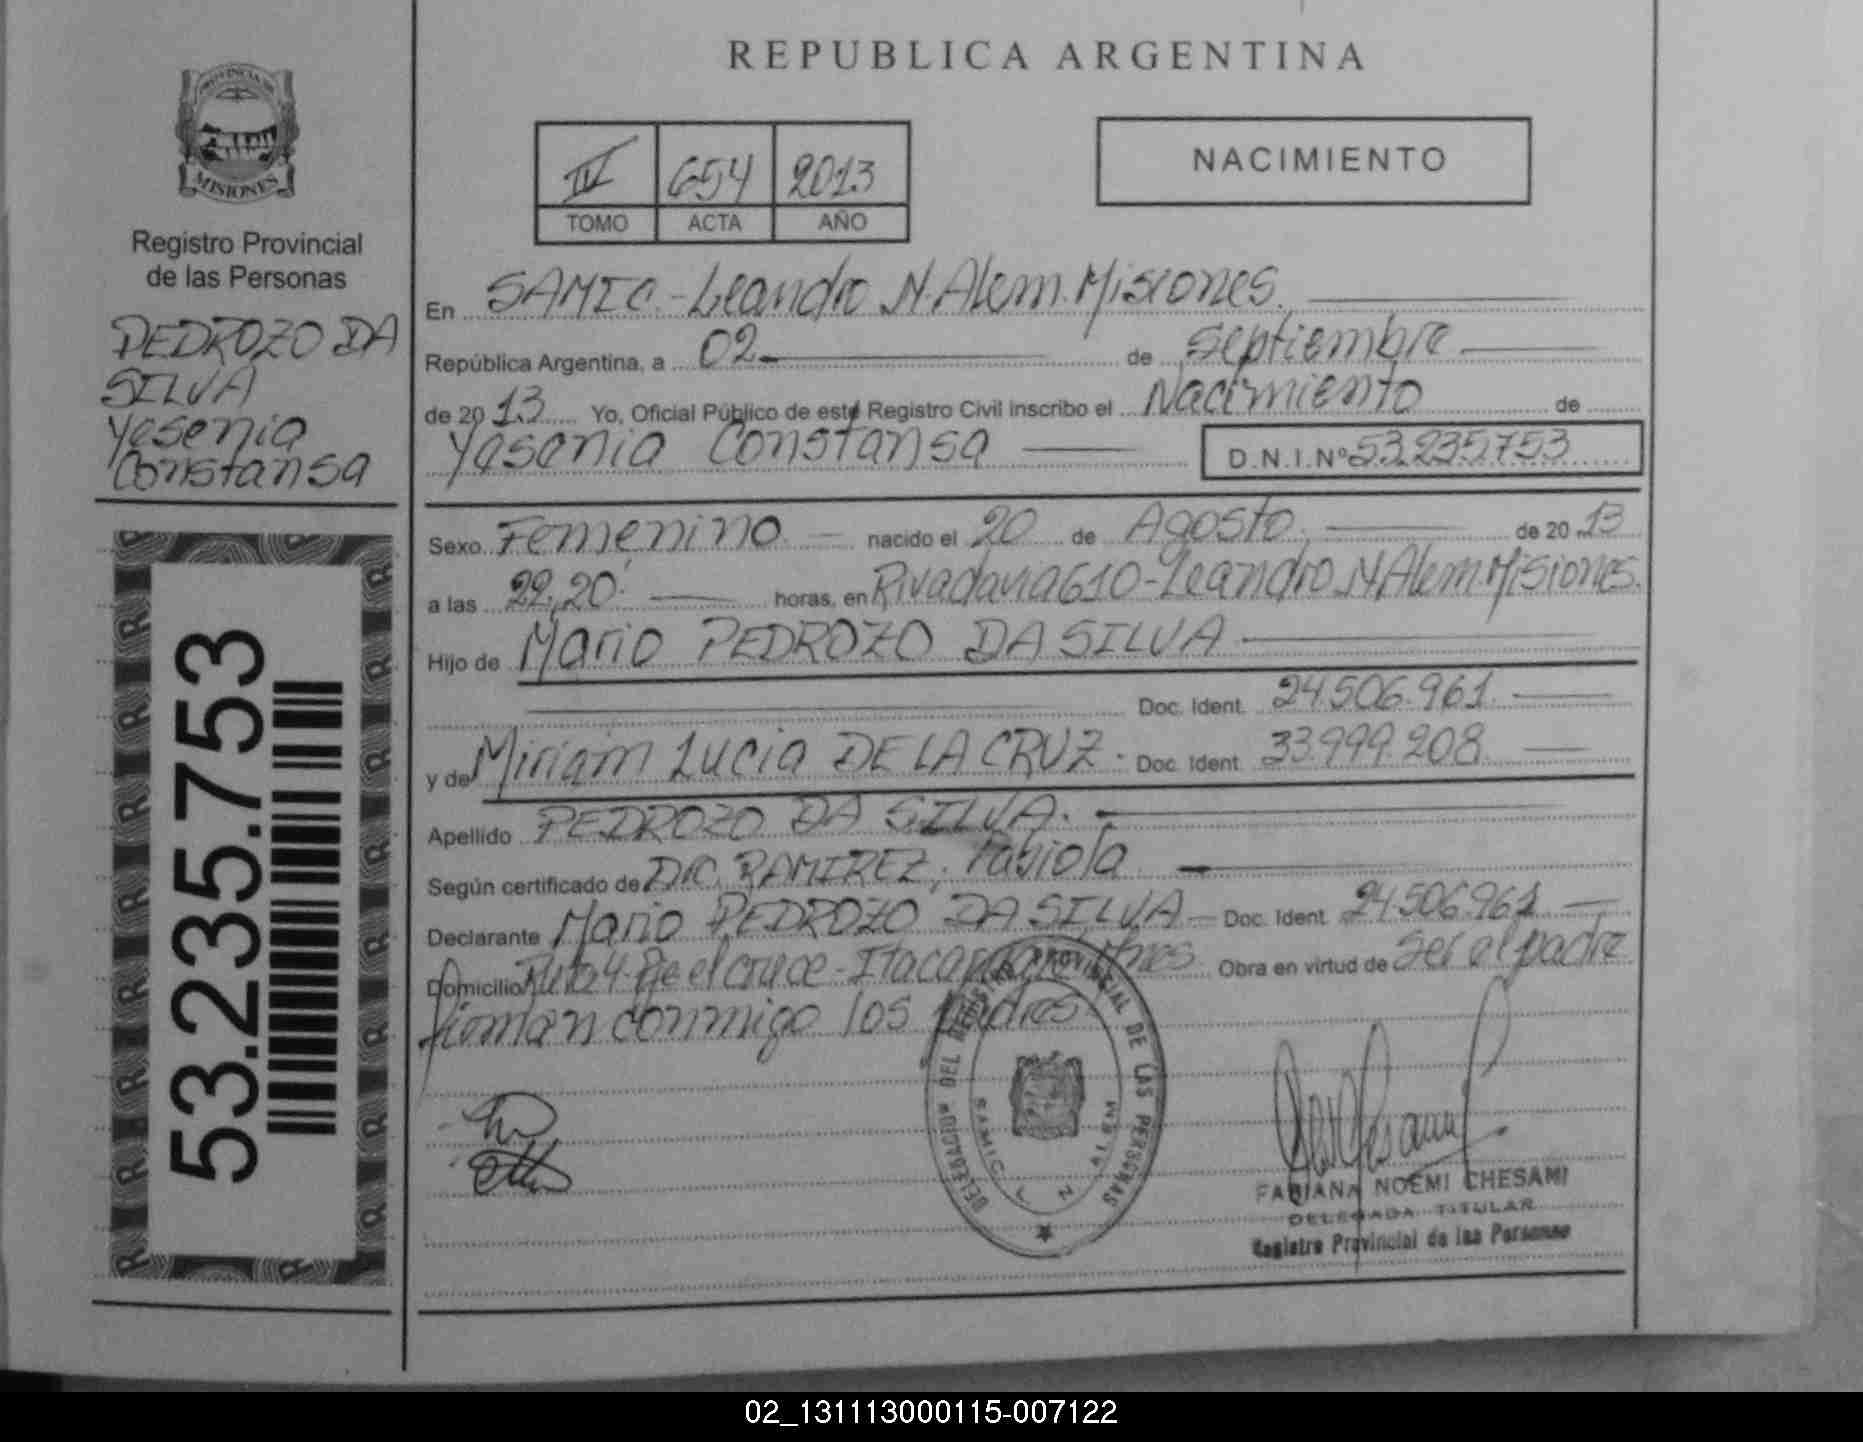 REPUBLICA ARGENTINA
PROVINCIA DE
MISIONES
Registro Provincial
de las Personas
PEDROZO DA
SILVA
Yesenia
Constansa
53.235.753
IV 654 2013
TOMO ACTA AÑO
NACIMIENTO
En SAMIC.-Leandro N.Alem.Misiones.
República Argentina, a 02 de septiembre
de 2013 Yo, Oficial Público de este Registro Civil inscribo el Nacimiento de
Yesenia Constansa D.N.I.Nº53.235.753
Sexo Femenino. nacido el 20 de Agosto. de 2013
a las 22,20' horas, en Rivadavia610-Leandro.N.Alem.Misiones.
Hijo de Mario PEDROZO DA SILVA
Doc. Ident. 24.506.961.
y de Miriam Lucia DE LA CRUZ. Doc. Ident. 33.999.208.
Apellido PEDROZO DA SILVA.
Según certificado de RAMIREZ, Fabiola
Declarante Mario PEDROZO DA SILVA Doc. Ident. 24.506.961
Domicilio Ruta 4. el cruce - Obra en virtud de ser el padre
firman conmigo los padres
DELEGACIÓN DEL REGISTRO PROVINCIAL DE LAS PERSONAS
SAMIC L N ALEM
FABIANA NOEMI CHESAMI
DELEGADA TITULAR
Registro Provincial de las Personas
02_131113000115-007122